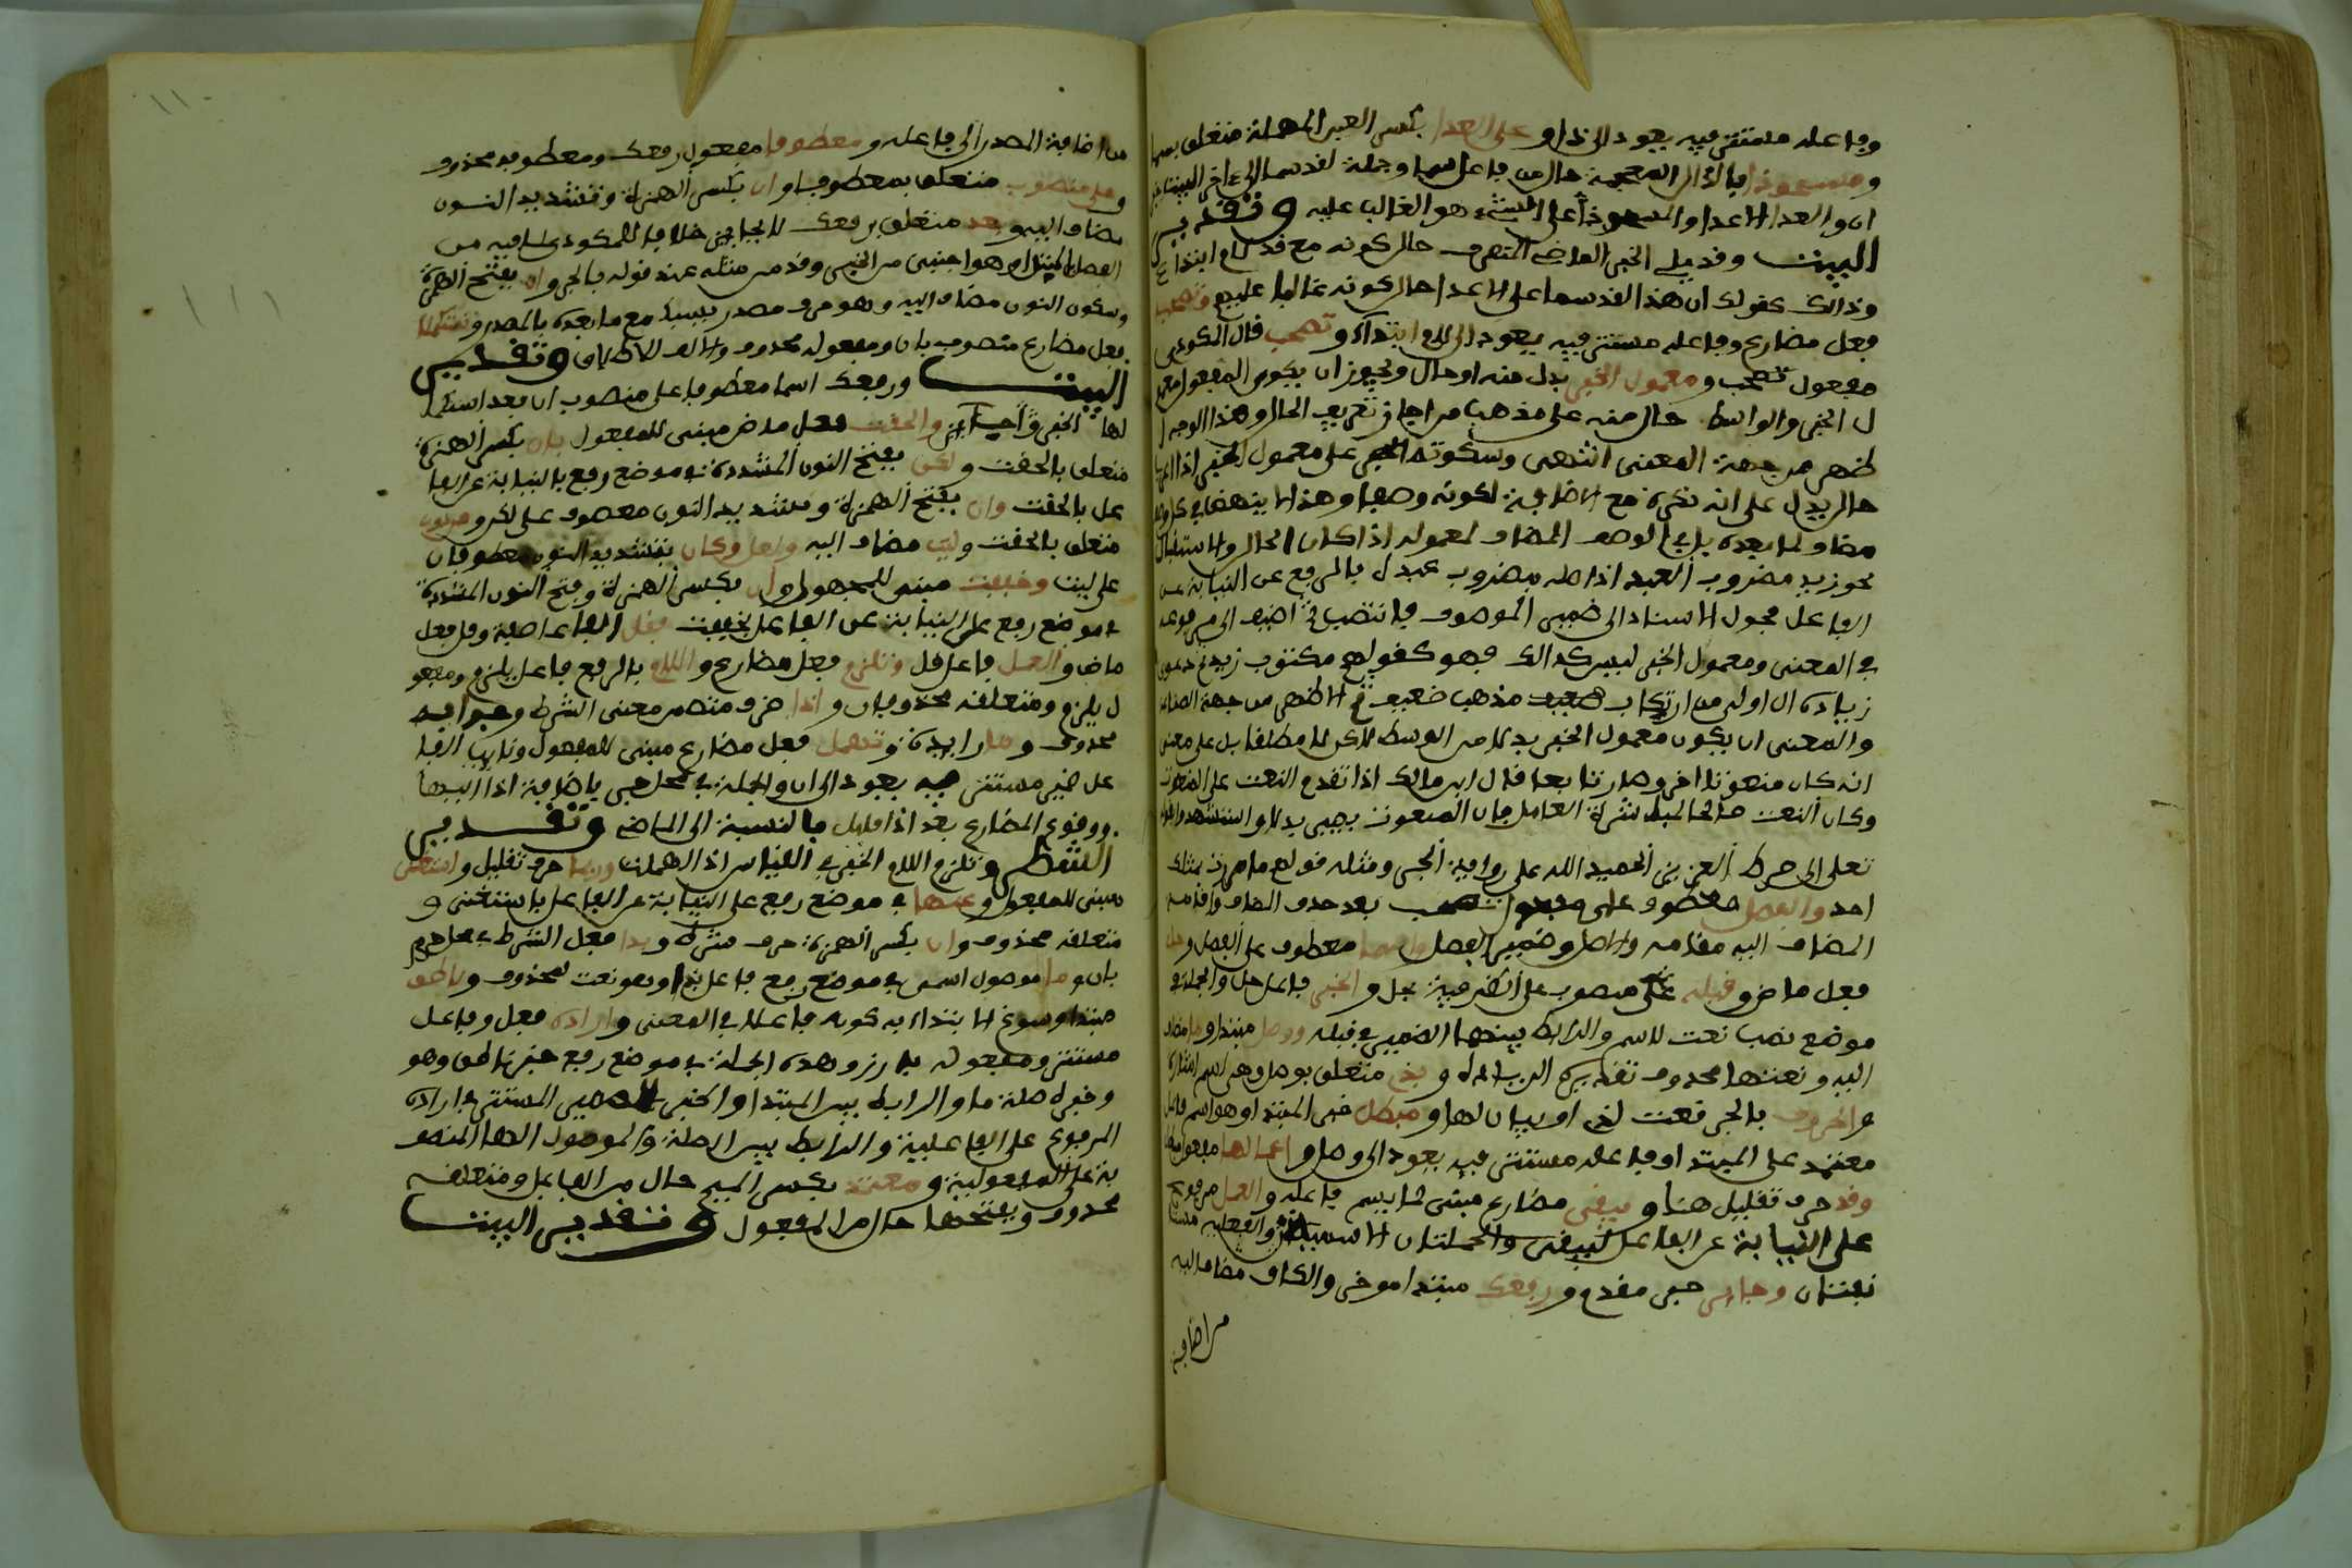 وفاعله مستتر فيه يعود الى ذا و على العدا بكسر العين المهملة متعلق
و مستحوذا بالذال المعجمة حال من فاعل سما وجملة لقد سما الى اخر البيت
ان والعدا الاعدا والمستحوذ على الشيء هو الغالب عليه وتقدير
البيت وقد يلي الخبر الماضي المتصرف حال كونه مع قد لام ابتداء
وذالك كقولك ان هذا لقد سما على الاعدا حال كونه غالبا عليهم وتصحب
فعل مضارع وفاعله مستتر فيه يعود الى لام ابتداء و تصحب قال المكودي
مفعول تصحب و معمول الخبر بدل منه او حال ويجوز ان يكون المفعول معمو
ل الخبر والواسط حال منه على مذهب من اجاز تعريف الحال وهذا الوجه ا
ظهر من جهة المعنى انتهى وسكوته على معمول الخبر اذا
حال يدل على انه نكرة مع الاضافة لكونه وصفا وهذا
مضاف لما بعده بل في الوصف المضاف لمعموله اذا كان للحال والاستقبال
نحو زيد مضروب العبد اذ اصله مضروب عبده بالرفع عن النيابة عن
الفاعل فحول الاسناد الى ضمير الموصوف فانتصب ثم اضيف الى مرفوعه
في المعنى ومعمول الخبر ليس كذالك فهو كقولهم مكتوب زيد
زيادة ال اولى من ارتكاب مذهب ضعيف ثم الاظهر من جهة الصناعة
والمعنى ان يكون معمول الخبر بدلا من الواسط لاكن لا مطلقا بل على معنى
انه كان منعوتا اخر وصار تابعا قال ابن مالك اذا تقدم النعت على المنعوت
وكان النعت صالحا لمباشرة العامل فان المنعوت يجيء بدلا واستشهد
تعلى الى صراط العزيز الحميد الله على رواية الجر ومثله قولهم ما مررت بمثلك
احد والفصل معطوف على بعد حذف المضاف واقامة
المضاف اليه مقامه والاصل وضمير الفصل واسما معطوف على الفصل و حل
فعل ماض و قبله منصوب على الظرفية بحل و الخبر فاعل حل والجملة في
موضع نصب نعت للاسم والرابط بينهما الضمير في قبله ووصل مبتدا و ما مضاف
اليه ونعتها محذوف تقديره الزائدة و بذي متعلق بوصل وهي اسم اشارة
و الحروف بالجر نعت لذي او بيان لها و مبطل خبر المبتدا وهو اسم فاعل
معتمد على المبتدا وفاعله مستتر فيه يعود الى وصل و اعمالها مفعول
وقد حرف تقليل هنا و يبقى مضارع مبني لما لم يسم فاعله و العمل مرفوع
على النيابة عن الفاعل ليبقى والجملتان الاسمية والفعلية
نعتان و جائز خبر مقدم و رفعك مبتدا موخر والكاف مضاف اليه
من اضافة
من اضافة المصدر الى فاعله و معطوفا مفعول رفعك ومعطوفه محذوف
و على منصوب متعلق بمعطوفا و ان بكسر الهمزة وتشديد النون
مضاف اليه و بعد متعلق برفعك لا بجائز خلافا للمكودي لما فيه من
الفصل بالمبتدا وهو اجنبي من الخبر وقد مر مثله عند قوله بالجر و ان بفتح الهمزة
وسكون النون مضاف اليه وهو حرف مصدر يسبك مع ما بعده بالمصدر و تستكملا
فعل مضارع منصوب بان ومفعوله محذوف والالف للاطلاق وتقدير
البيت ورفعك اسما معطوفا على منصوب ان بعد استكما
لها الخبر جائز والحقت فعل ماض مبني للمفعول بان بكسر الهمزة
متعلق بالحقت و لكن بفتح النون المشددة في موضع رفع بالنيابة عن الفا
عل بالحقت وان بفتح الهمزة وتشديد النون معطوف على لكن و من دون
متعلق بالحقت و ليت مضاف اليه و لعل وكان بتشديد النون معطوفان
على ليت وخففت مبني للمجهول و ان بكسر الهمزة وفتح النون المشددة
في موضع رفع على النيابة عن الفاعل بخففت فقل الفا عاطفة وقل فعل
ماض و العمل فاعل قل و تلزم فعل مضارع و اللام بالرفع فاعل يلزم ومفعو
ل يلزم ومتعلقه محذوفان و اذا ظرف متضمن معنى الشرط وجوابه
محذوف و ما زايدة و تهمل فعل مضارع مبني للمفعول ونايب الفا
عل ضمير مستتر فيه يعود الى ان والجملة في محل جر باضافة اذا اليها
ووقوع المضارع بعد اذا قليل بالنسبة الى الماضي وتقدير
الشطر وتلزم اللام الخبر في القياس اذا اهملت وربما حرف تقليل و استغني
مبني للمفعول و عنها في موضع رفع على النيابة عن الفاعل باستغني و
متعلقه محذوف و ان بكسر الهمزة حرف شرط و بدا فعل الشرط في محل جزم
بان و ما موصول اسمي في موضع رفع فاعل بدا وهو نعت لمحذوف و ناطق
مبتدا وسوغ الابتداء به كونه فاعلا في المعنى و اراده فعل وفاعل
مستتر ومفعول بارز وهذه الجملة في موضع رفع خبر ناطق وهو
وخبره صلة ما والرابط بين المبتدا والخبر الضمير المستتر في اراده
المرفوع على الفاعلية والرابط بين الصلة والموصول الها المنصو
بة على المفعولية و معتمد بكسر الميم حال من الفاعل ومتعلقه
محذوف وبفتحها حال من المفعول وتقدير البيت